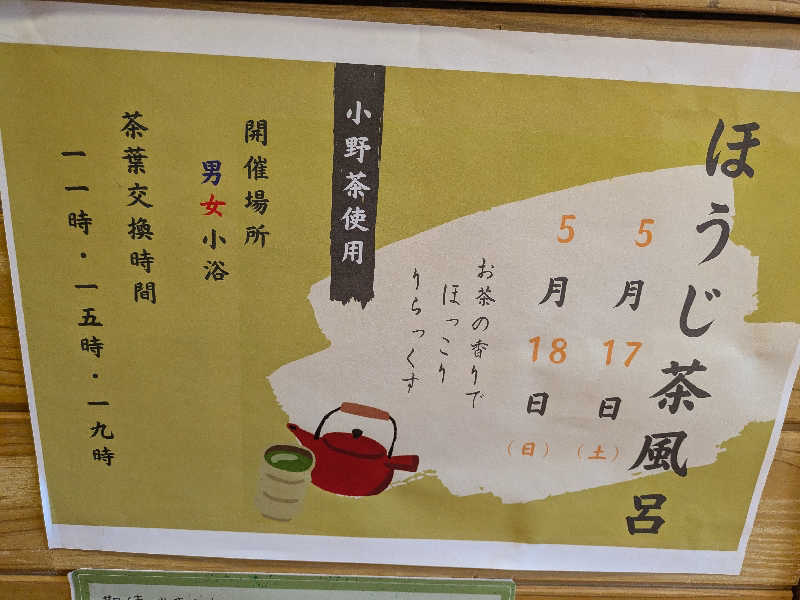 ほうじ茶風呂
5月17日（土）
5月18日（日）
お茶の香りで
ほっこり
りらっくす
小野茶使用
開催場所
男女小浴
茶葉交換時間
一一時・一五時・一九時